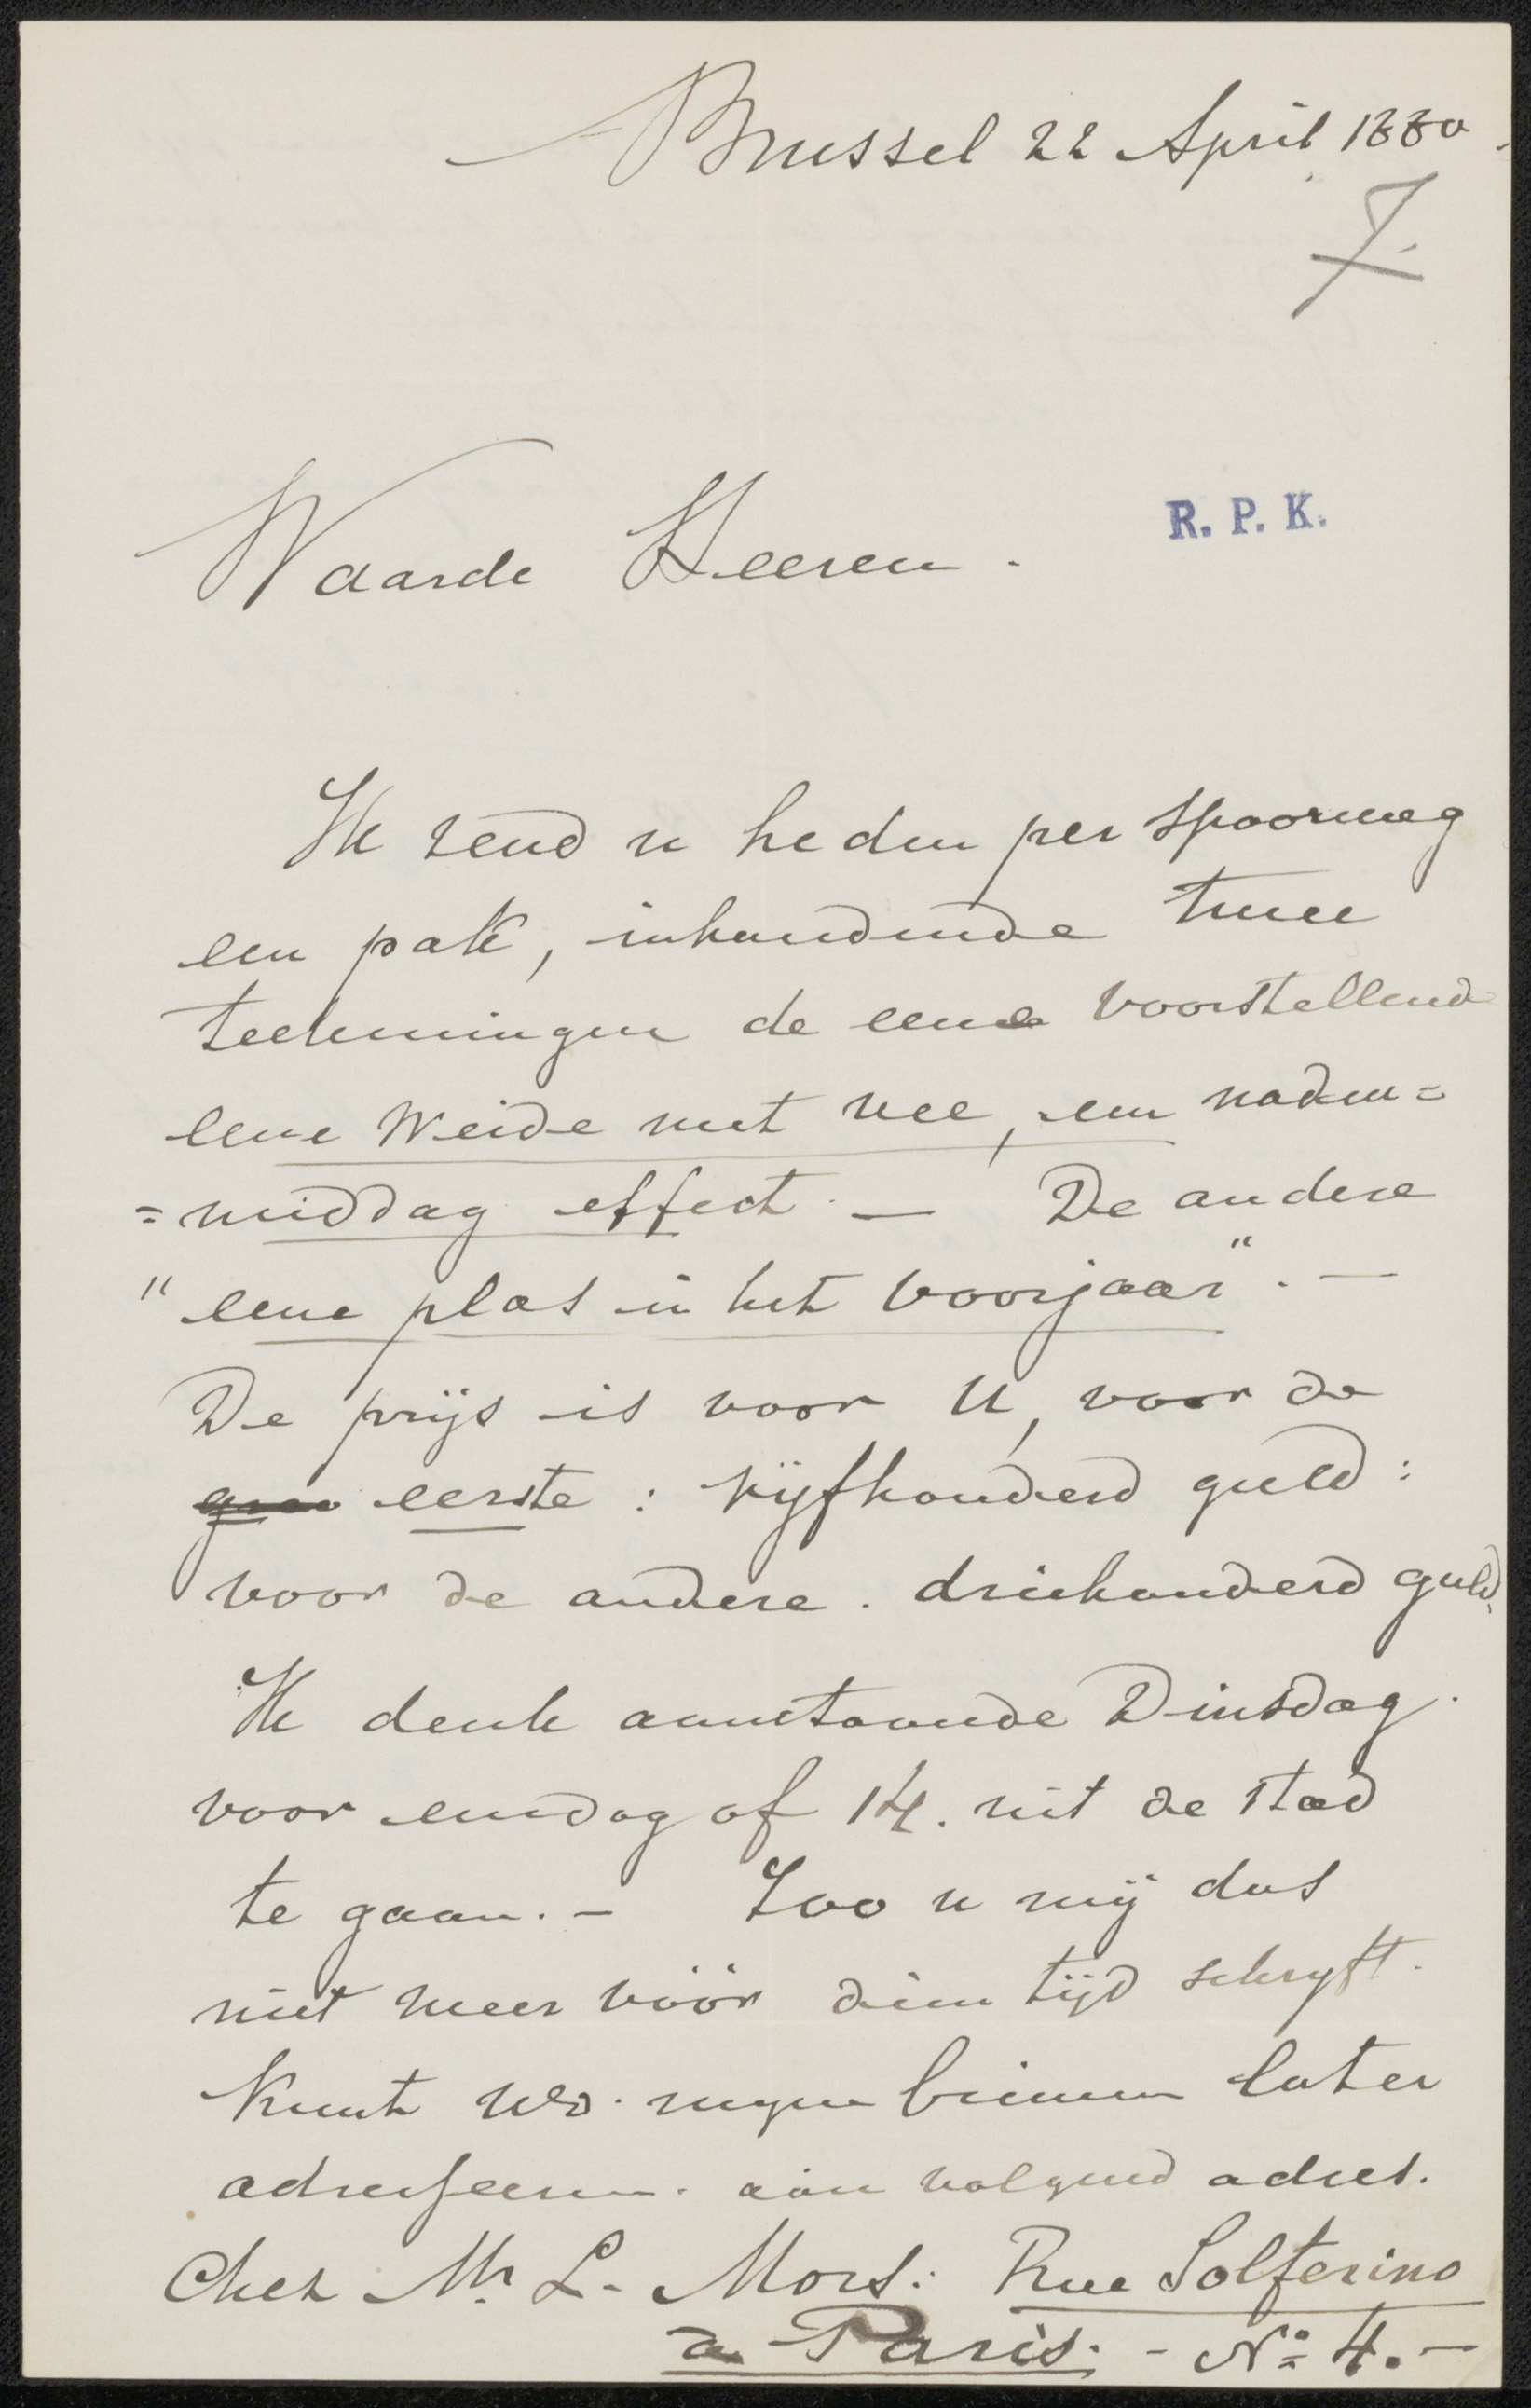 Brussel 22 April 1880.
7.
Waarde Heeren.
R. P. K.
Ik zend u heden per spoorweg
een pak, inhoudende twee
teekeningen de eene voorstellend
eene Weide met vee, een nademi=
=middag effect. — De andere
"eene plas in het voorjaar". —
De prijs is voor U, voor de
eerste: vijfhonderd guld:
voor de andere. driehonderd guld.
Ik denk aanstaande Dinsdag.
voor een dag of 14. uit de stad
te gaan. — Zoo u mij dus
niet meer vóór dien tijd schryft.
Kunt mijn later
adresseeren. aan volgend adres.
Chez Mr. L. Mors: Rue Solferino
a Paris. - No: 4. —